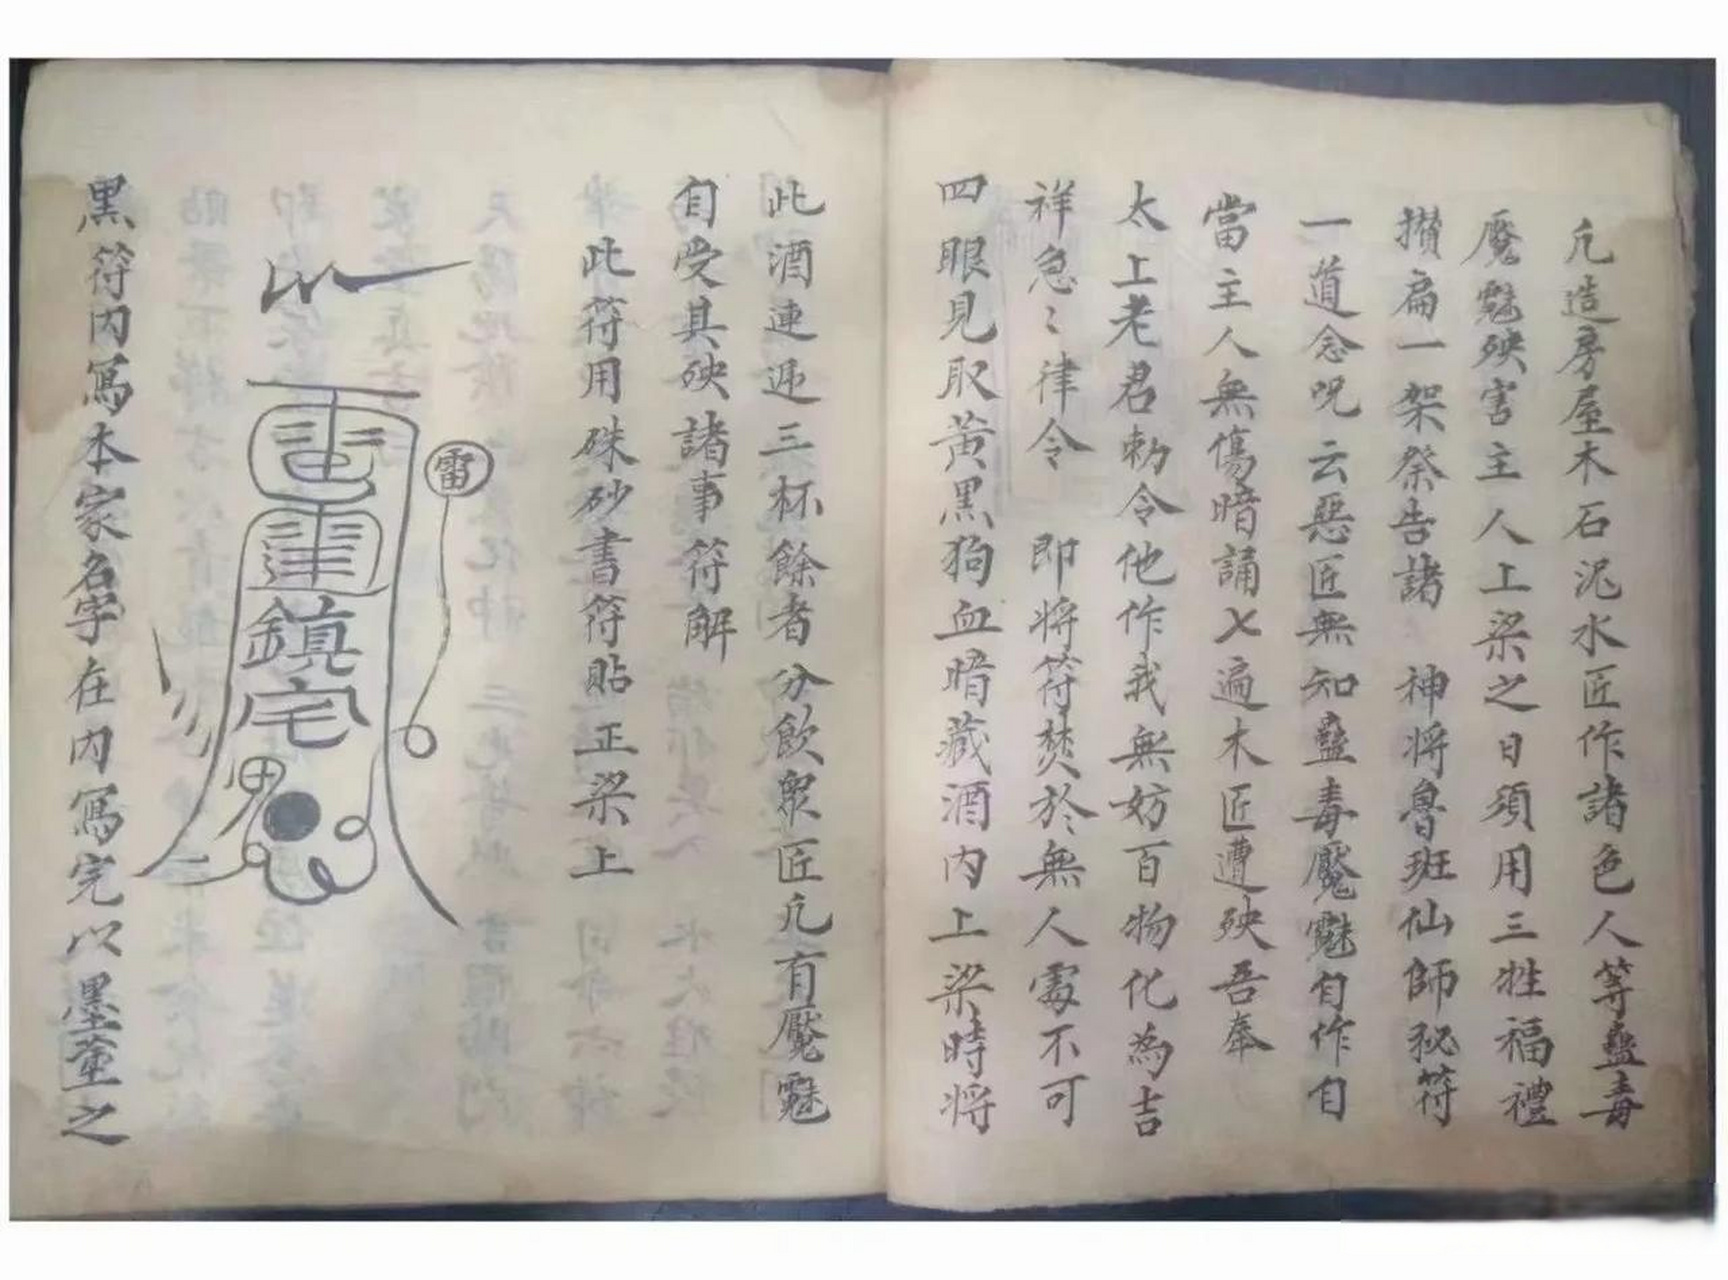 凢造房屋木石泥水匠作諸色人等蠱毒
魘魅殃害主人上梁之日須用三牲福禮
攅扁一架祭告諸 神将魯班仙師秘符
一道念呪云惡匠無知蠱毒魘魅自作自
當主人無傷暗誦七遍木匠遭殃吾奉
太上老君勅令他作我無妨百物化為吉
祥急〻律令 即将符焚於無人處不可
四眼見取黃黑狗血暗藏酒内上梁時将
此酒連遞三杯餘者分飲衆匠凢有魘魅
自受其殃諸事符解
此符用硃砂書符貼正梁上
雷
鎮宅
黑符内寫本家名字在内寫完以墨董之